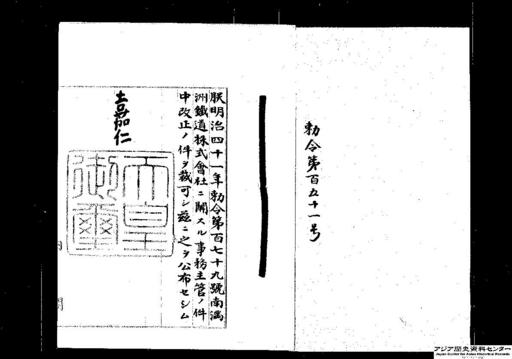 勅令第百五十一号
朕明治四十一年勅令第百七十九號南滿
洲鐵道株式會社ニ關スル事務主管ノ件
中改正ノ件ヲ裁可シ茲ニ之ヲ公布セシム
嘉仁
天皇
御璽
アジア歴史資料センター
Japan Center for Asian Historical Records